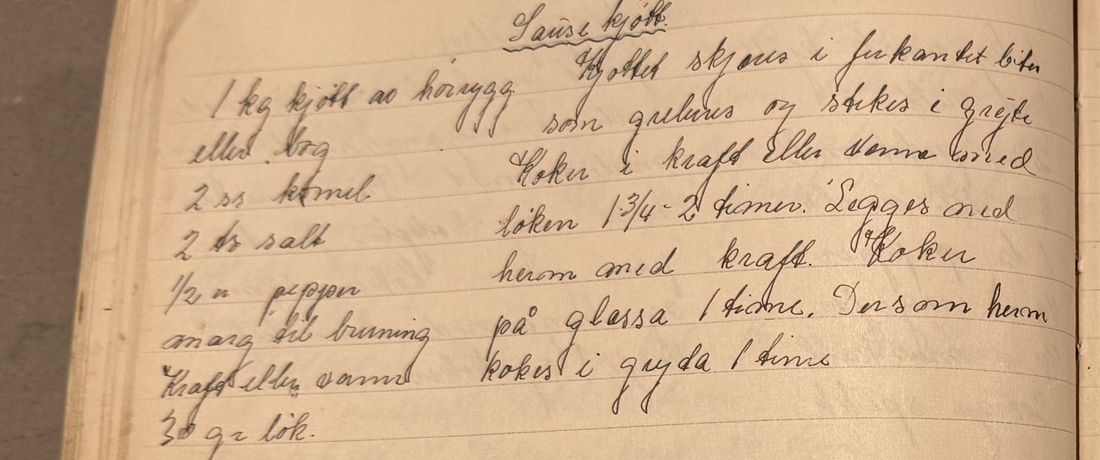 Sause kjøtt.
1 kg kjøtt av høirygg
eller bog
2 ss hvmel
2 ts salt
1/2 " pepper
marg til bruning
Kraft eller vann
30 gr løk.
Kjøttet skjæres i firkantet biter
som greluns og stekes i gryte
Koker i kraft eller vann med
løken 1 3/4 - 2 timer. Legges med
herm med kraft. Koker
på glassa 1 time. Dersom herm
kokes i gryda 1 time